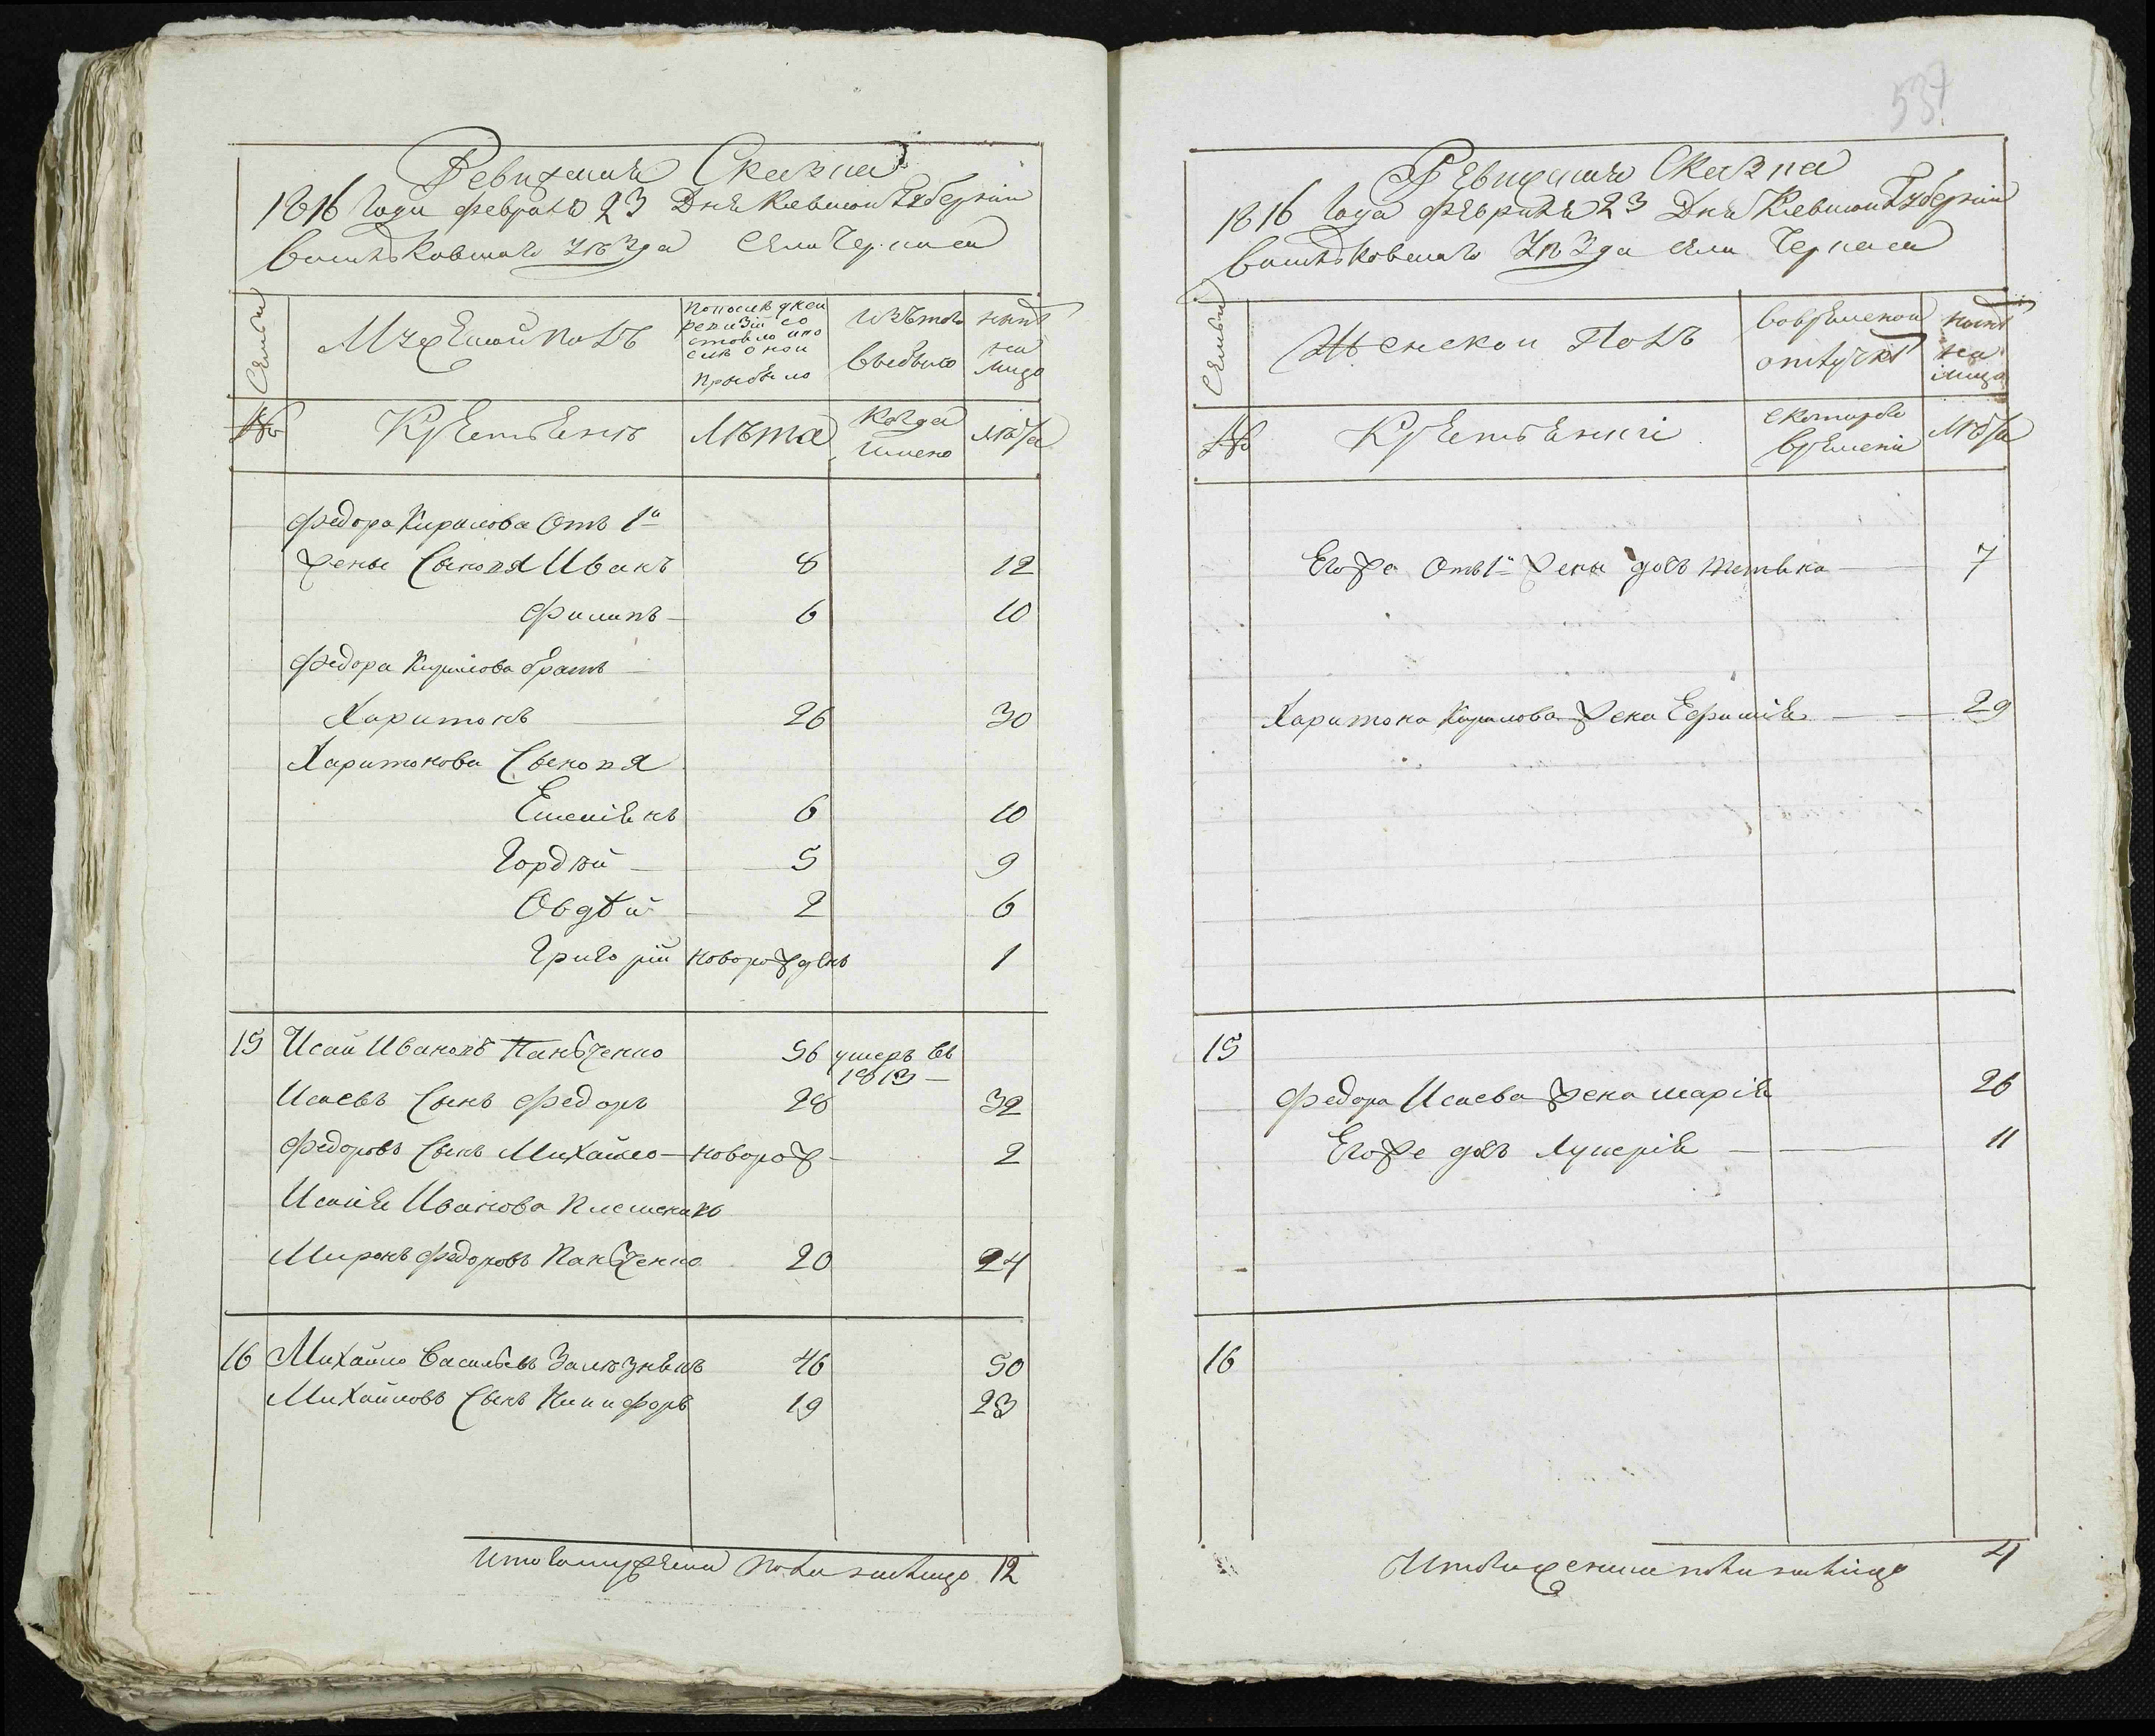 Ревижская Сказка
1816 Года февраля 23 Дня Киевской Губернии
васильковскаго Уѣзда Села Черкаса
Семьи
Мужеской полъ
По последней ревизіи со стояло и после оной прибыло
Изътого выбыло
нынѣ на лицо
№
Крестьянъ
Лѣта
Когда имено
Лѣта
Федора Кирилова Отъ 1й
жены Сыновя Иванъ 8 12
Филипъ 6 10
Федора Кирилова братъ
Харитонъ 26 30
Харитонова Сыновя
Емелiянъ 6 10
Гордѣй 5 9
Овдѣй 2 6
Григорiй новорожденъ 1
15 Исай Ивановъ Панченко 56 умеръ въ 1813
Исаевъ Сынъ Федоръ 28 32
Федоровъ Сынъ Михайло новорож 2
Исаiя Иванова племеникъ
Миронъ Федоровъ Панченко 20 24
16 Михайло Васильевъ Зализнякъ 46 50
Михайловъ Сынъ Никифоръ 19 23
Итого мужеска пола налицо 12
537
Ревижская Сказка
1816 Года Февраля 23 Дня Киевской Губернии
васильковскаго Уѣзда села Черкаса
Семьи
Женской Полъ
вовременой отлучкѣ
нынѣ на лицо
№
Крестьянки
скотораго времени
Лѣта
Егоже Отъ 1й жены дочь 7
Харитона Кирилова жена Ефимiя 29
15
Федора Исаева жена марiя 26
Егоже дочь Лукерiя 11
16
Итого женска пола налицо 4